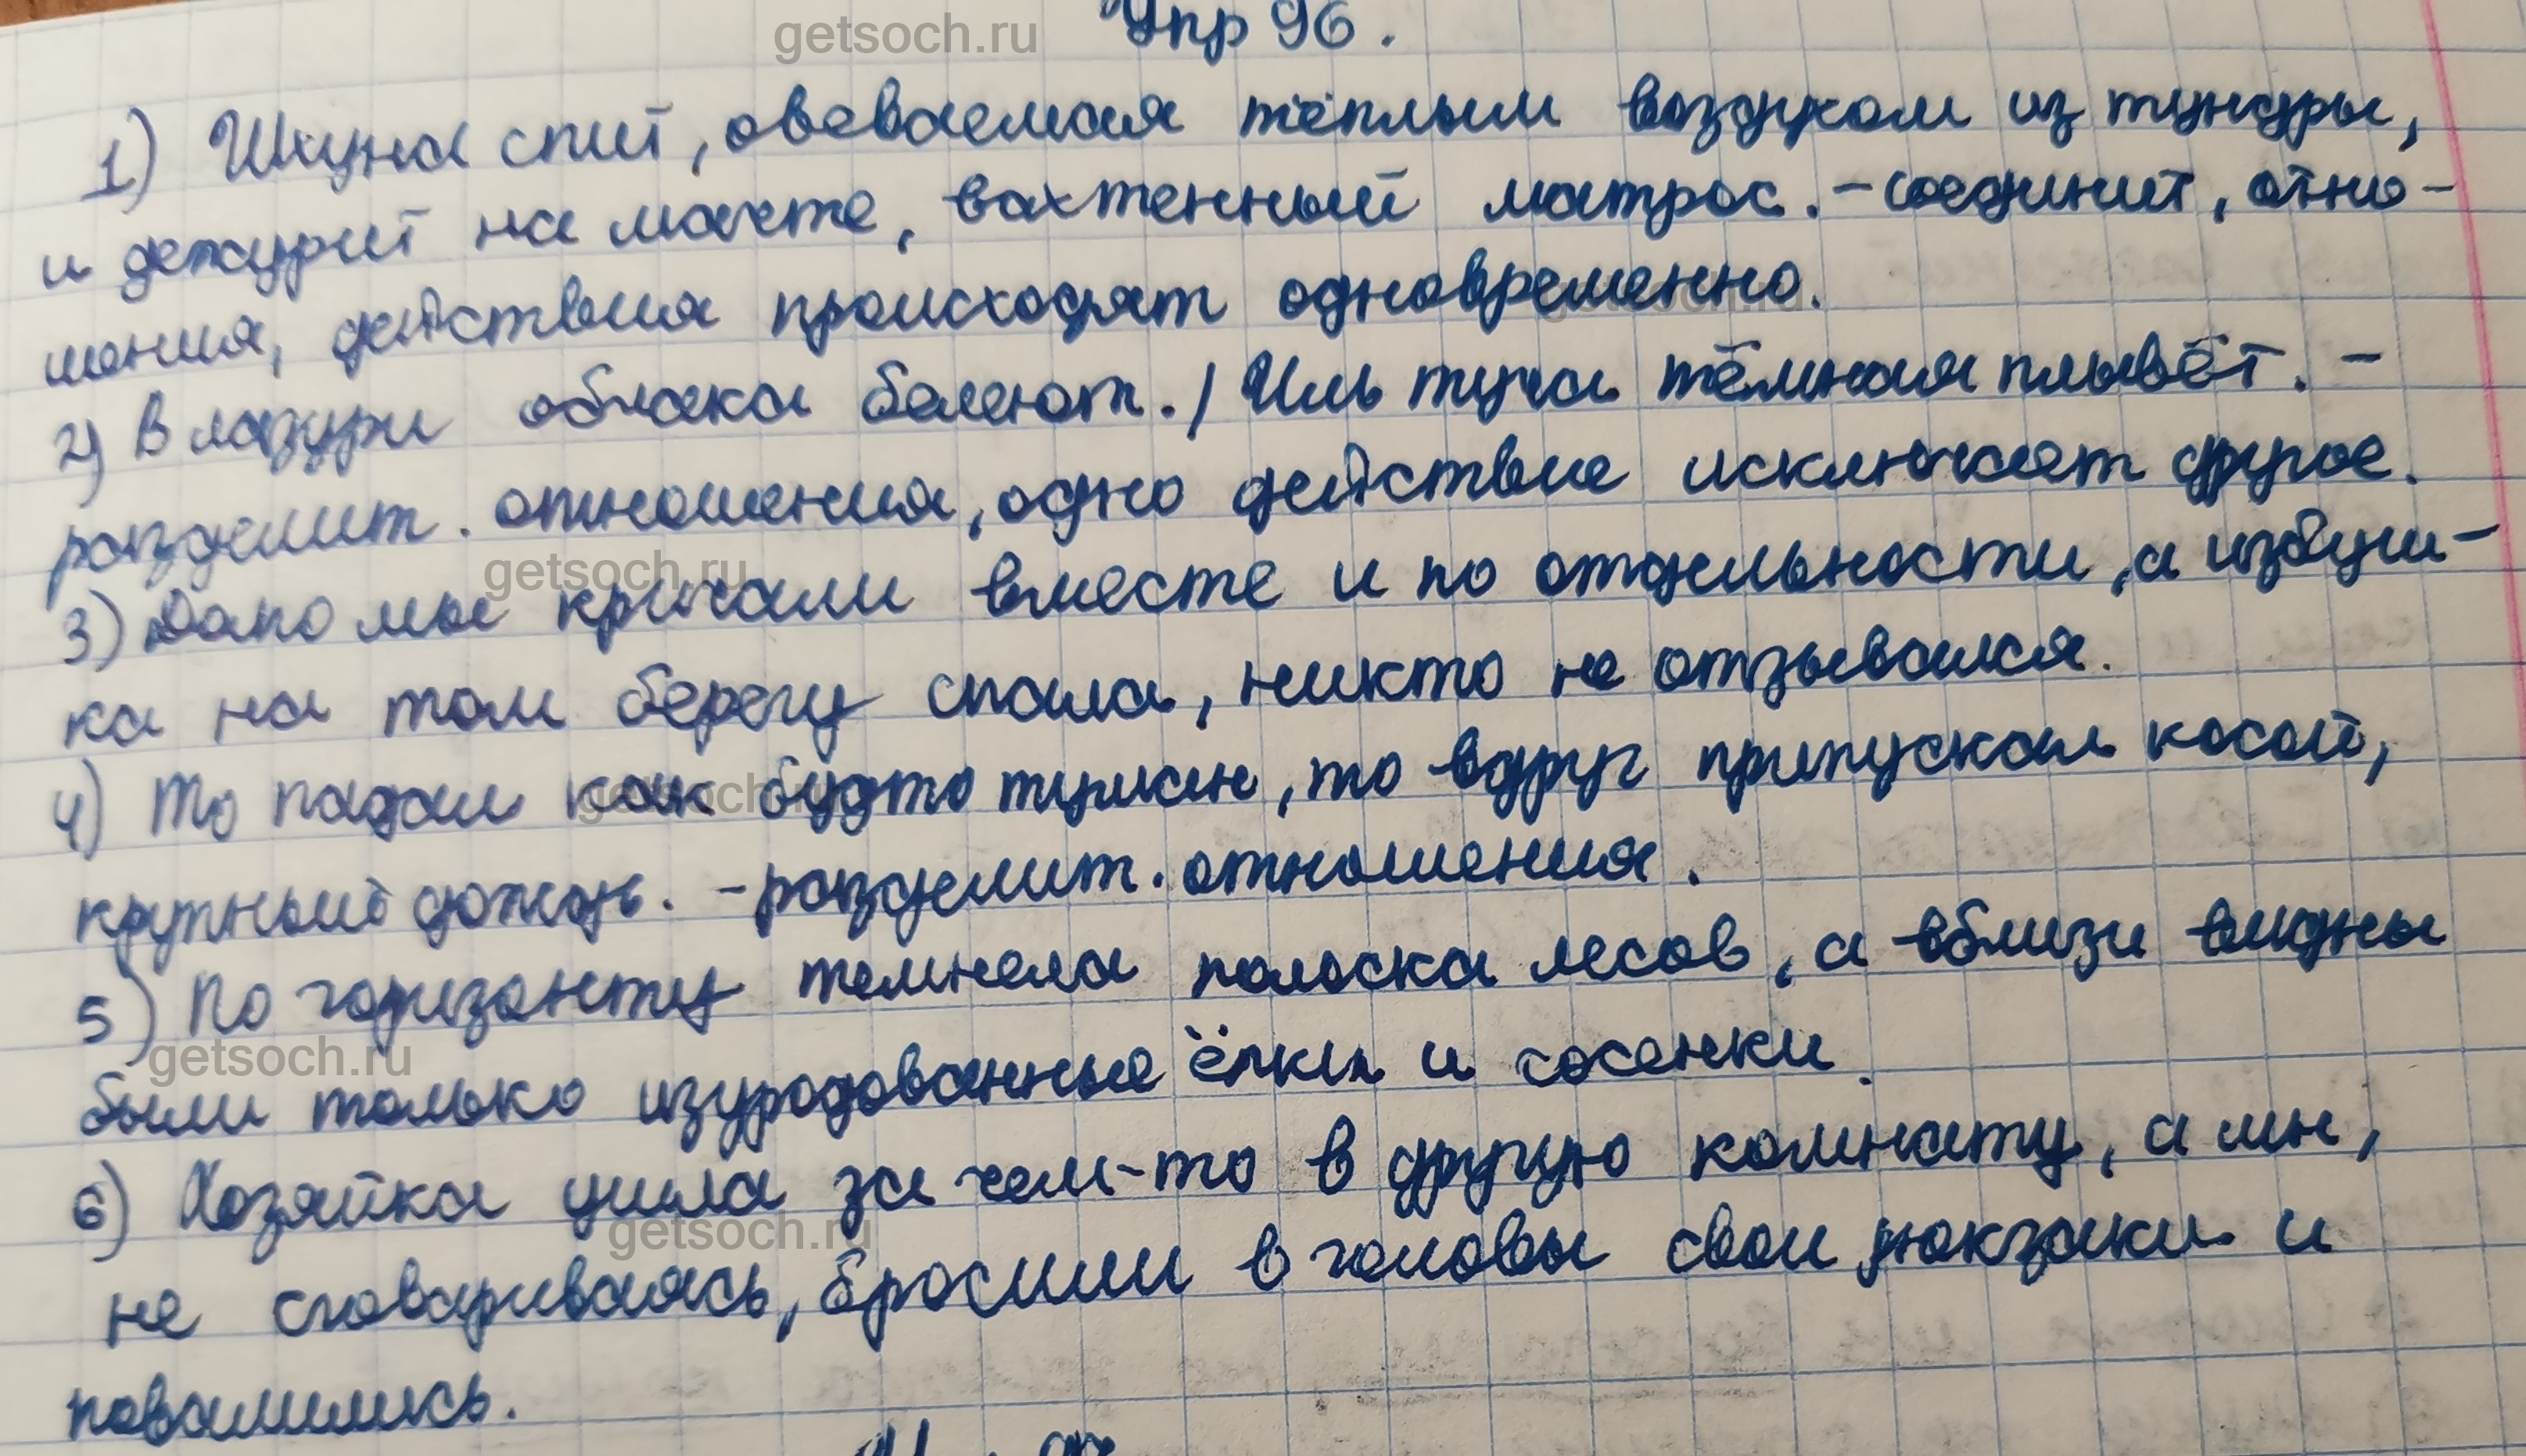 Упр 96.
1) Шхуна спит, овеваемая тёплым воздухом из тундры,
и дежурит на мачте, вахтенный матрос. - соединит, отно-
шения, действия происходят одновременно.
2) В лазури облака белеют. / Иль туча тёмная плывёт. -
разделит. отношения, одно действие исключает другое.
3) Долго мы кричали вместе и по отдельности, а избуш-
ка на том берегу спала, никто не отзывался.
4) То падал как будто туман, то вдруг припускал косой,
крупный дождь. - разделит. отношения.
5) По горизонту темнела полоска лесов, а вблизи видны
были только изуродованные ёлки и сосенки.
6) Хозяйка ушла за чем-то в другую комнату, а мы,
не сговариваясь, бросили в головы свои рюкзаки и
повалились.
getsoch.ru
getsoch.ru
getsoch.ru
getsoch.ru
getsoch.ru
getsoch.ru